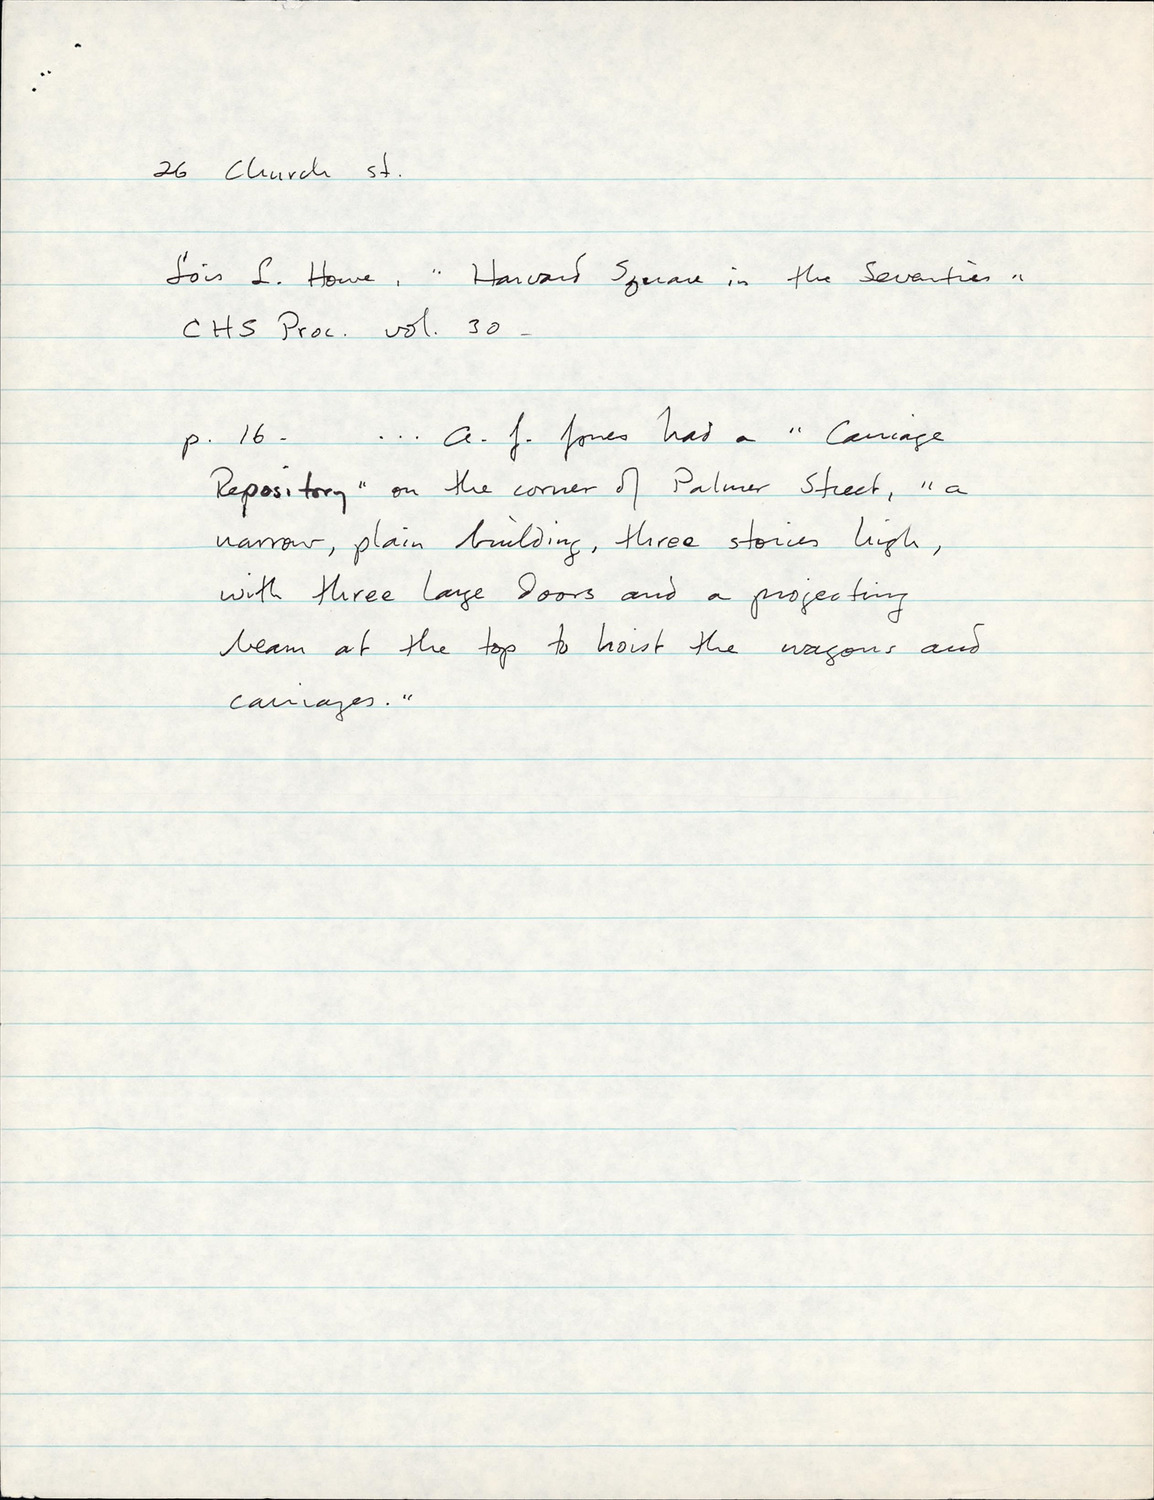 26 Church st.
Lois L. Howe, "Harvard Square in the Seventies"
CHS Proc. vol. 30 -
p. 16 - ... A. J. Jones had a "Carriage
Repository" on the corner of Palmer Street, "a
narrow, plain building, three stories high,
with three large doors and a projecting
beam at the top to hoist the wagons and
carriages."